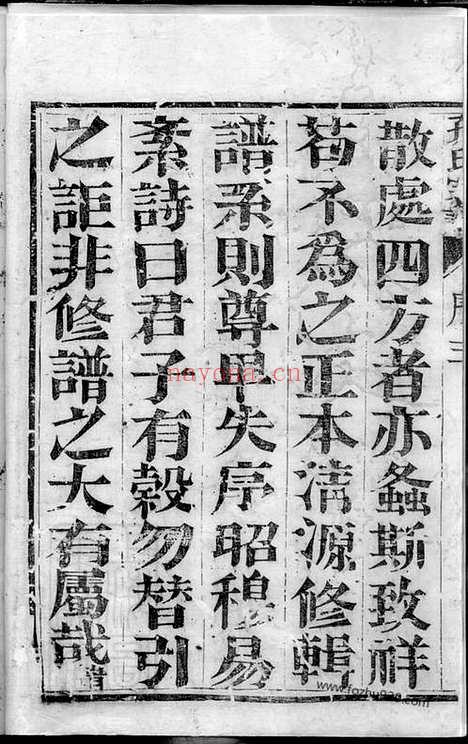 散處四方者亦螽斯致祥
茍不為之正本清源修輯
譜系則尊卑失序昭穆易
紊詩曰君子有穀勿替引
之詎非修譜之大有屬哉
nayona.cn